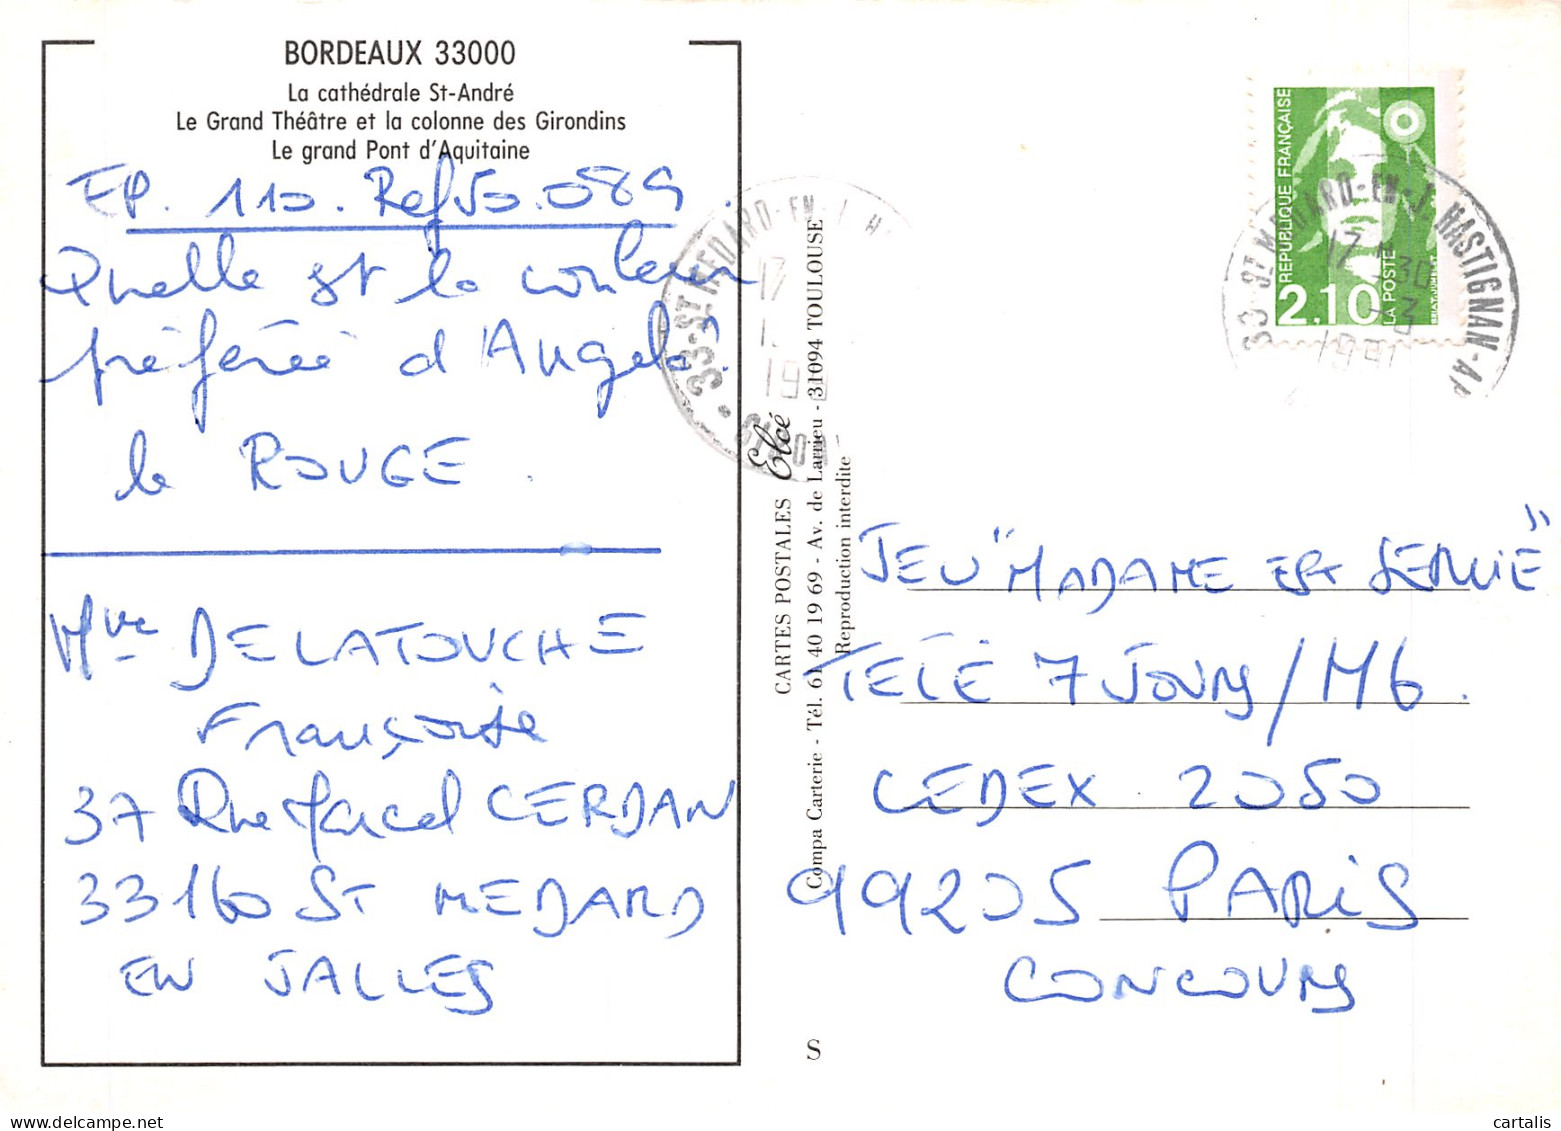 BORDEAUX 33000
La cathédrale St-André
Le Grand Théâtre et la colonne des Girondins
Le grand Pont d'Aquitaine
EP. 110. Ref 50.089.
Quelle est la couleur
préférée d'Angela?
le ROUGE.
Mme DELATOUCHE
Françoise
37 Rue Marcel CERDAN
33160 St MEDARD
EN JALLES
33-ST MEDARD-EN-J. H
17
19
CARTES POSTALES Elcé
Compa Carterie - Tél. 61 40 19 69 - Av. de Larrieu - 31094 TOULOUSE
Reproduction interdite
S
REPUBLIQUE FRANÇAISE
2.10
LA POSTE
33-ST MEDARD-EN-J. HASTIGNAN-A
17 H 30
-3
1991
JEU "MADAME EST SERVIE"
TELE 7 JOURS / M6.
CEDEX 2050
99205 PARIS
CONCOURS
www.delcampe.net
cartalis